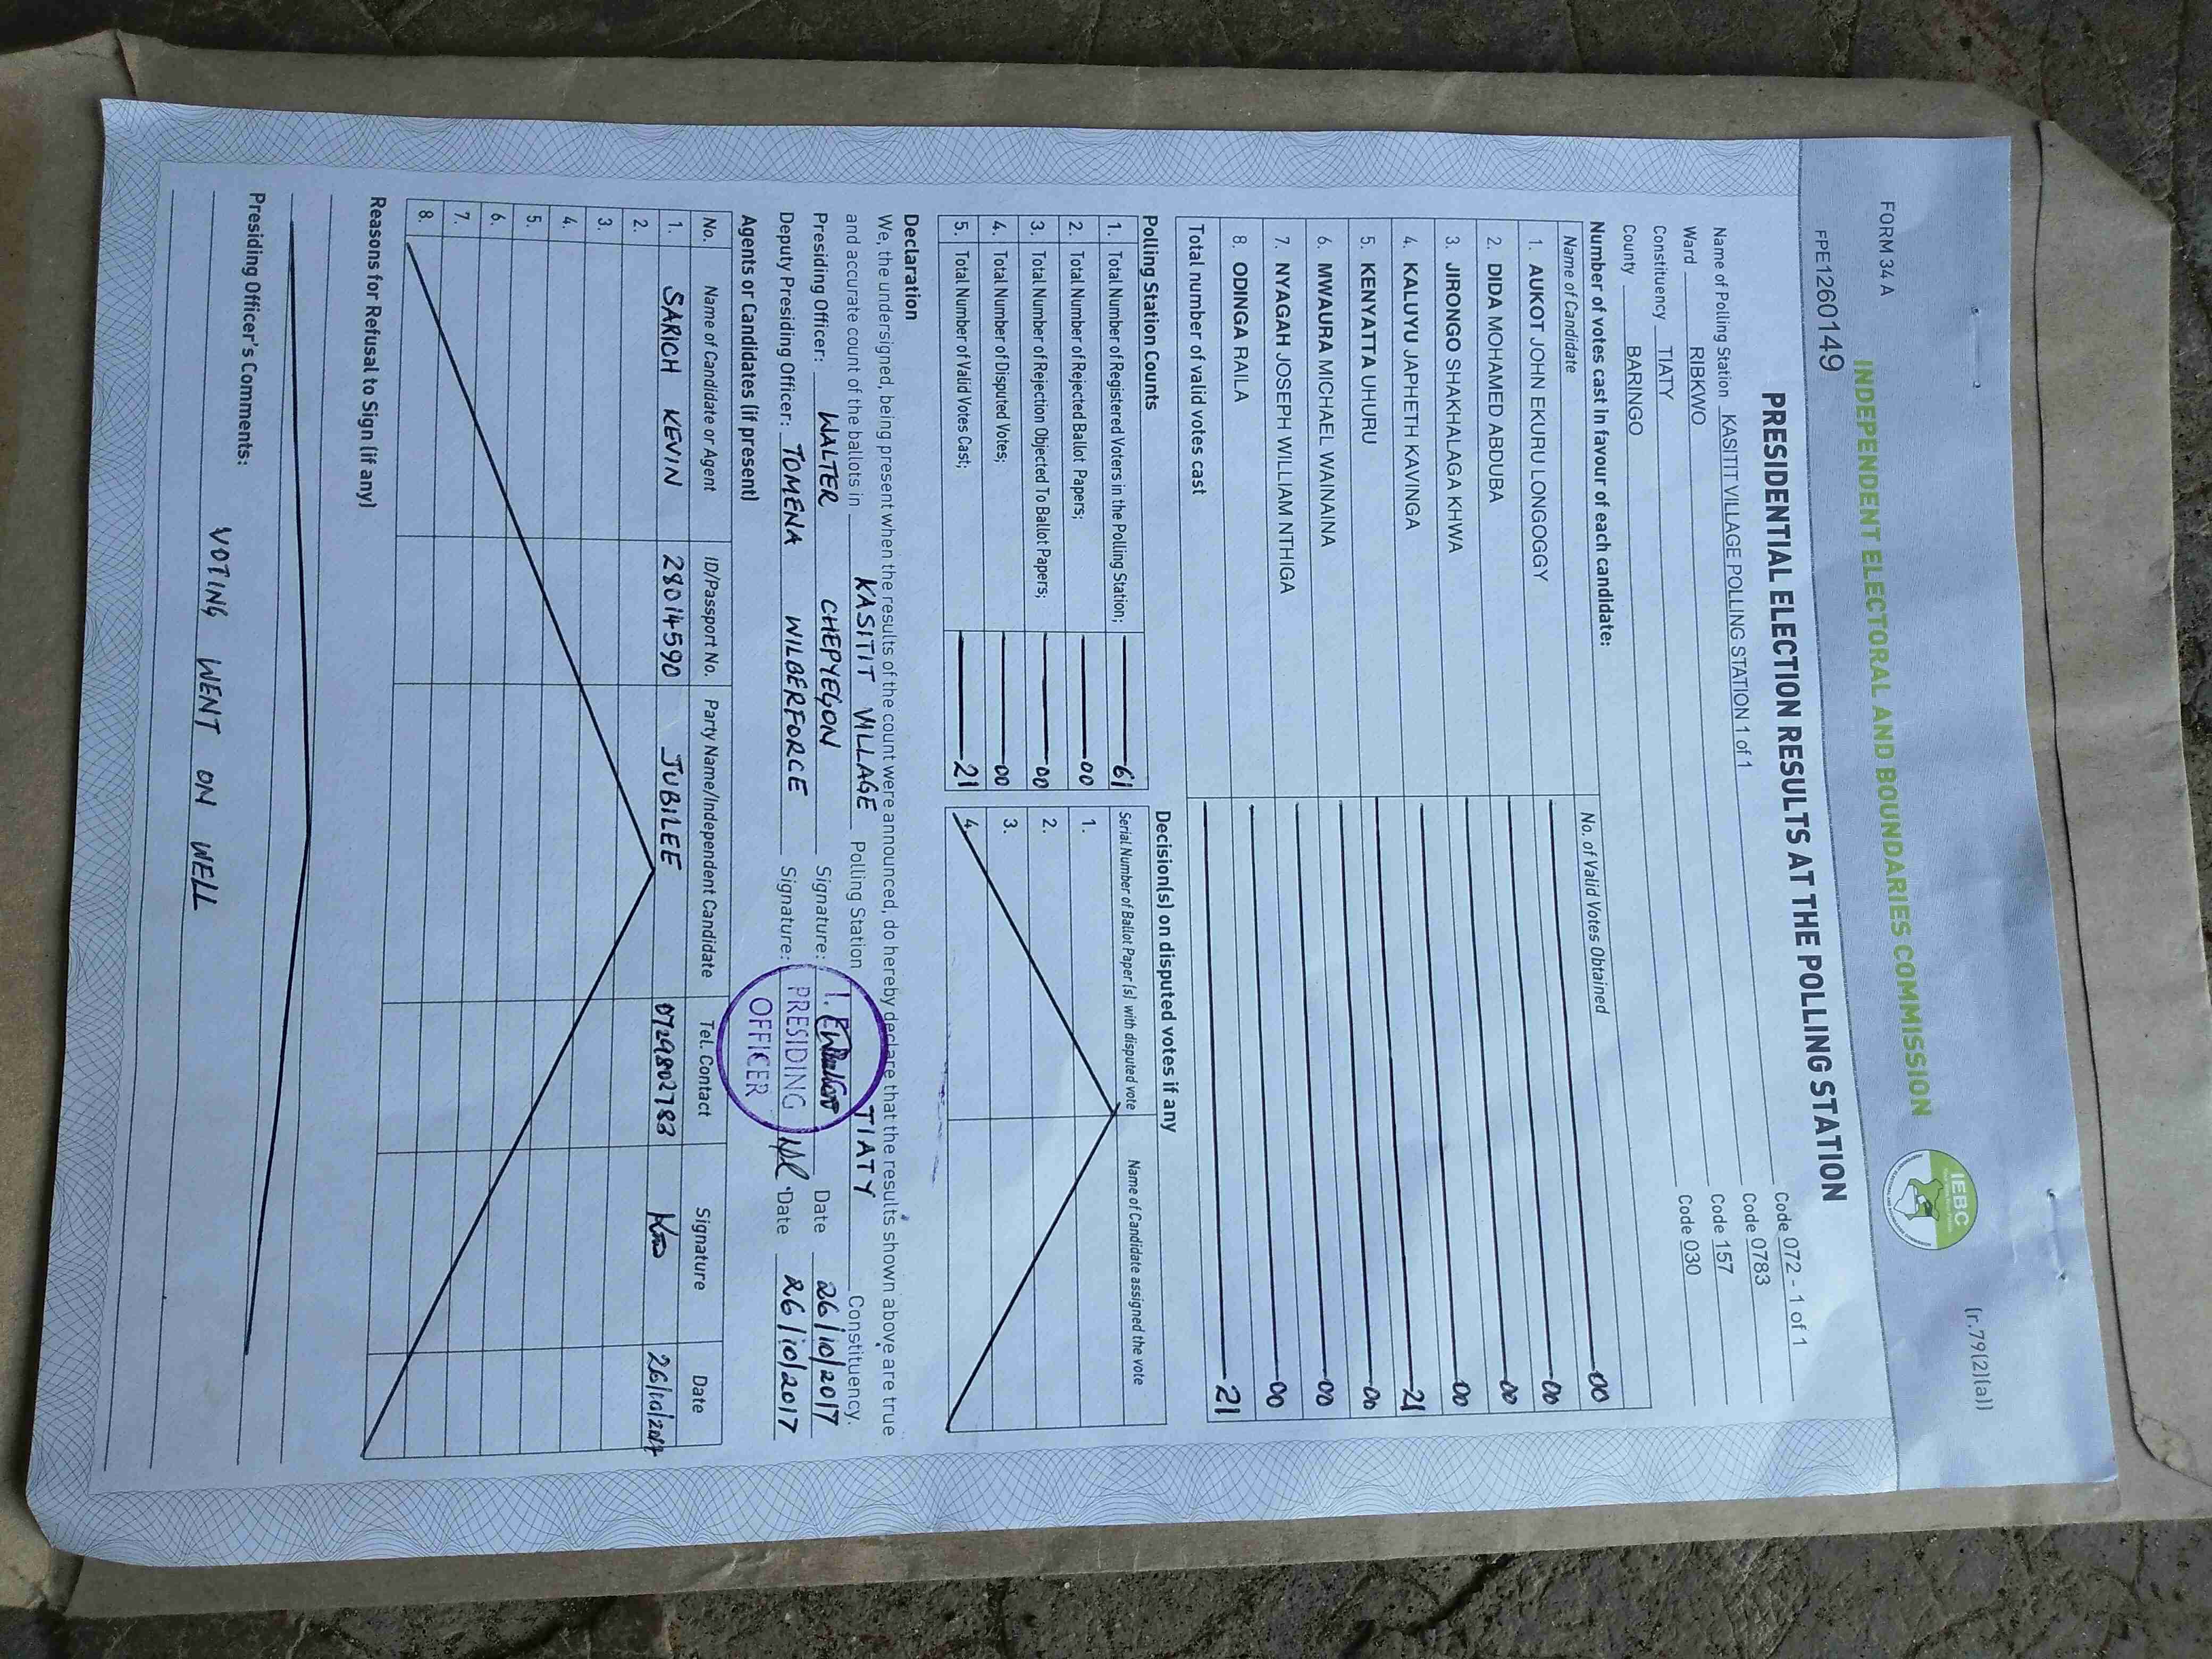 FORM 34 A
(r.79(2)(a))
INDEPENDENT ELECTORAL AND BOUNDARIES COMMISSION
IEBC
FPE1260149
PRESIDENTIAL ELECTION RESULTS AT THE POLLING STATION
Name of Polling Station KASITIT VILLAGE POLLING STATION 1 of 1 Code 072 - 1 of 1
Ward RIBKWO Code 0783
Constituency TIATY Code 157
County BARINGO Code 030
Number of votes cast in favour of each candidate:
Name of Candidate No. of Valid Votes Obtained
1. AUKOT JOHN EKURU LONGOGGY 00
2. DIDA MOHAMED ABDUBA 00
3. JIRONGO SHAKHALAGA KHWA 00
4. KALUYU JAPHETH KAVINGA 00
5. KENYATTA UHURU 21
6. MWAURA MICHAEL WAINAINA 00
7. NYAGAH JOSEPH WILLIAM NTHIGA 00
8. ODINGA RAILA 00
Total number of valid votes cast 21
Polling Station Counts
1. Total Number of Registered Voters in the Polling Station; 61
2. Total Number of Rejected Ballot Papers; 00
3. Total Number of Rejection Objected To Ballot Papers; 00
4. Total Number of Disputed Votes; 00
5. Total Number of Valid Votes Cast; 21
Decision(s) on disputed votes if any
Serial Number of Ballot Paper (s) with disputed vote Name of Candidate assigned the vote
1.
2.
3.
4.
Declaration
We, the undersigned, being present when the results of the count were announced, do hereby declare that the results shown above are true
and accurate count of the ballots in KASITIT VILLAGE Polling Station TIATY Constituency.
Presiding Officer: WALTER CHEPYEGON Signature: Date 26/10/2017
Deputy Presiding Officer: TOMENA WILBERFORCE Signature: Date 26/10/2017
PRESIDING
OFFICER
Agents or Candidates (if present)
No. Name of Candidate or Agent ID/Passport No. Party Name/Independent Candidate Tel. Contact Signature Date
1. SARICH KEVIN 28014590 JUBILEE 0729802783 26/10/2017
2.
3.
4.
5.
6.
7.
8.
Reasons for Refusal to Sign (if any)
Presiding Officer's Comments:
VOTING WENT ON WELL